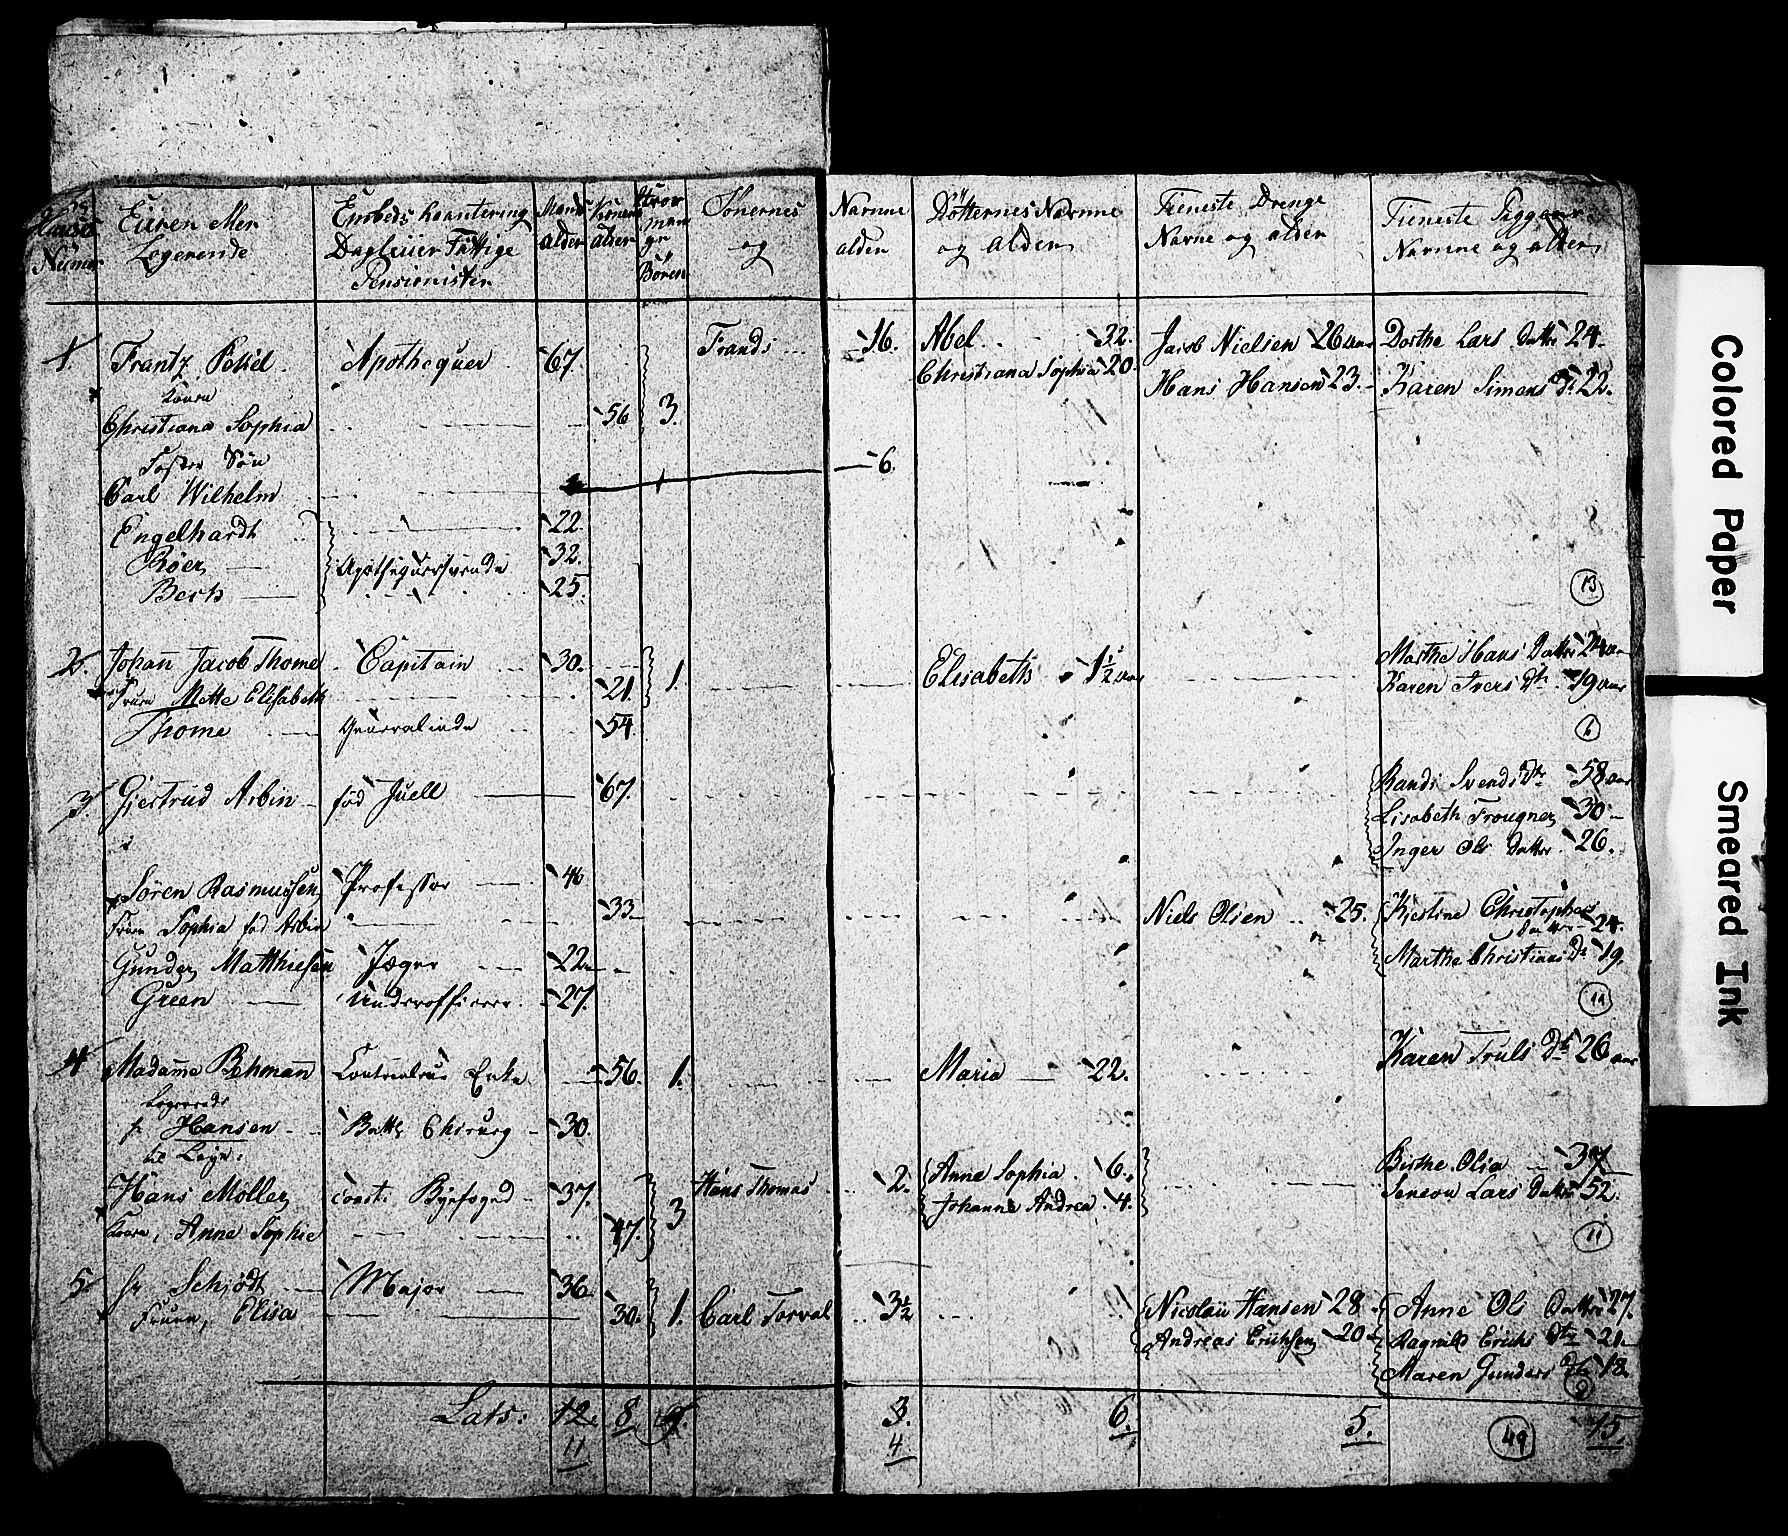 Huus Numer
Eieren eller Logerende
Embeds haantering Dagleiier Fattige Pensionister
Mands alder
Konens alder
Hvor mange Börn
Sönernes og
Navnne alder
Dötternes Navnne og alder
Tieneste Drenge Navne og alder
Tieneste Navnne og alder
1. Frantz Pekel. Apothequer 67. Frands 16. Abel 22. Jacob Nielsen 26 aar Dorthe Lars Datter 24
Christiana Sophia 20 Hans Hansen 23. Karen Simens Dr 22.
Konen
Christiana Sophia 56 3.
Foster Sön 6.
Carl Wilhelm
Engelhardt 22
Röer Apothequersvende 32.
Bech 25.
13
2. Johan Jacob Thome Capitain 30. 1. Elisabeth 1½ aar Marthe Hans Datter 24 aar
Fruen Mette Elisabeth 21 Karen Ivers Dr. 19 aar
Thome Generalinde 54
6
3. Giertrud Arbin född Juell 67. Randi Svends Dr 58 aar
Lisabeth Frougner 30
Inger Ols Datter 26.
Sören Rasmussen Professor 46
Fruen Sophia föd Arbin 33 Niels Olsen 25. Kiestine Christophers Datter 24.
Gunder Matthiesen Jæger 22 Marthe Christians Dr 19.
Green Underofficeer 27.
11
4 Madame Behman Enke 56. 1. Maria 22. Karen Truls Dr 26 aar
Logerende
hr Hansen Batt. Chirurg 30.
til Leye:
Hans Möller const: Byefoged 37. 3 Hans Thomas 2. Anne Sophia 6. Birthe Olia 37
Johanne Andrea 4. Lars Datter 52.
Konen, Anne Sophie 47.
11
5. hr Schiödt Major 36
Fruen, Elisa 30. 1. Carl Torval 3½ Nicolaii Hansen 28 Anne Ols Datter 27.
Andreas Erichsen 20 Ragnild Erichs Dr 21
Maren Gunders Dr 18
9
Lats: 12. 8. 9. 3. 6. 5. 49 15
11 4.
Colored Paper
Smeared Ink